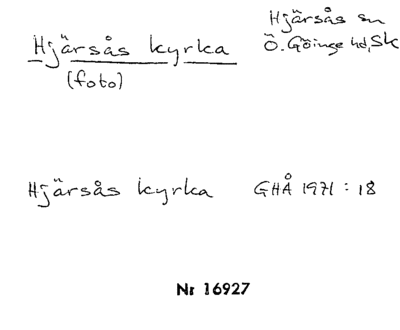 Hjärsås sn
Ö. Göinge hd, Sk
Hjärsås kyrka
(foto)
Hjärsås kyrka GHÅ 1971 : 18
Nr 16927